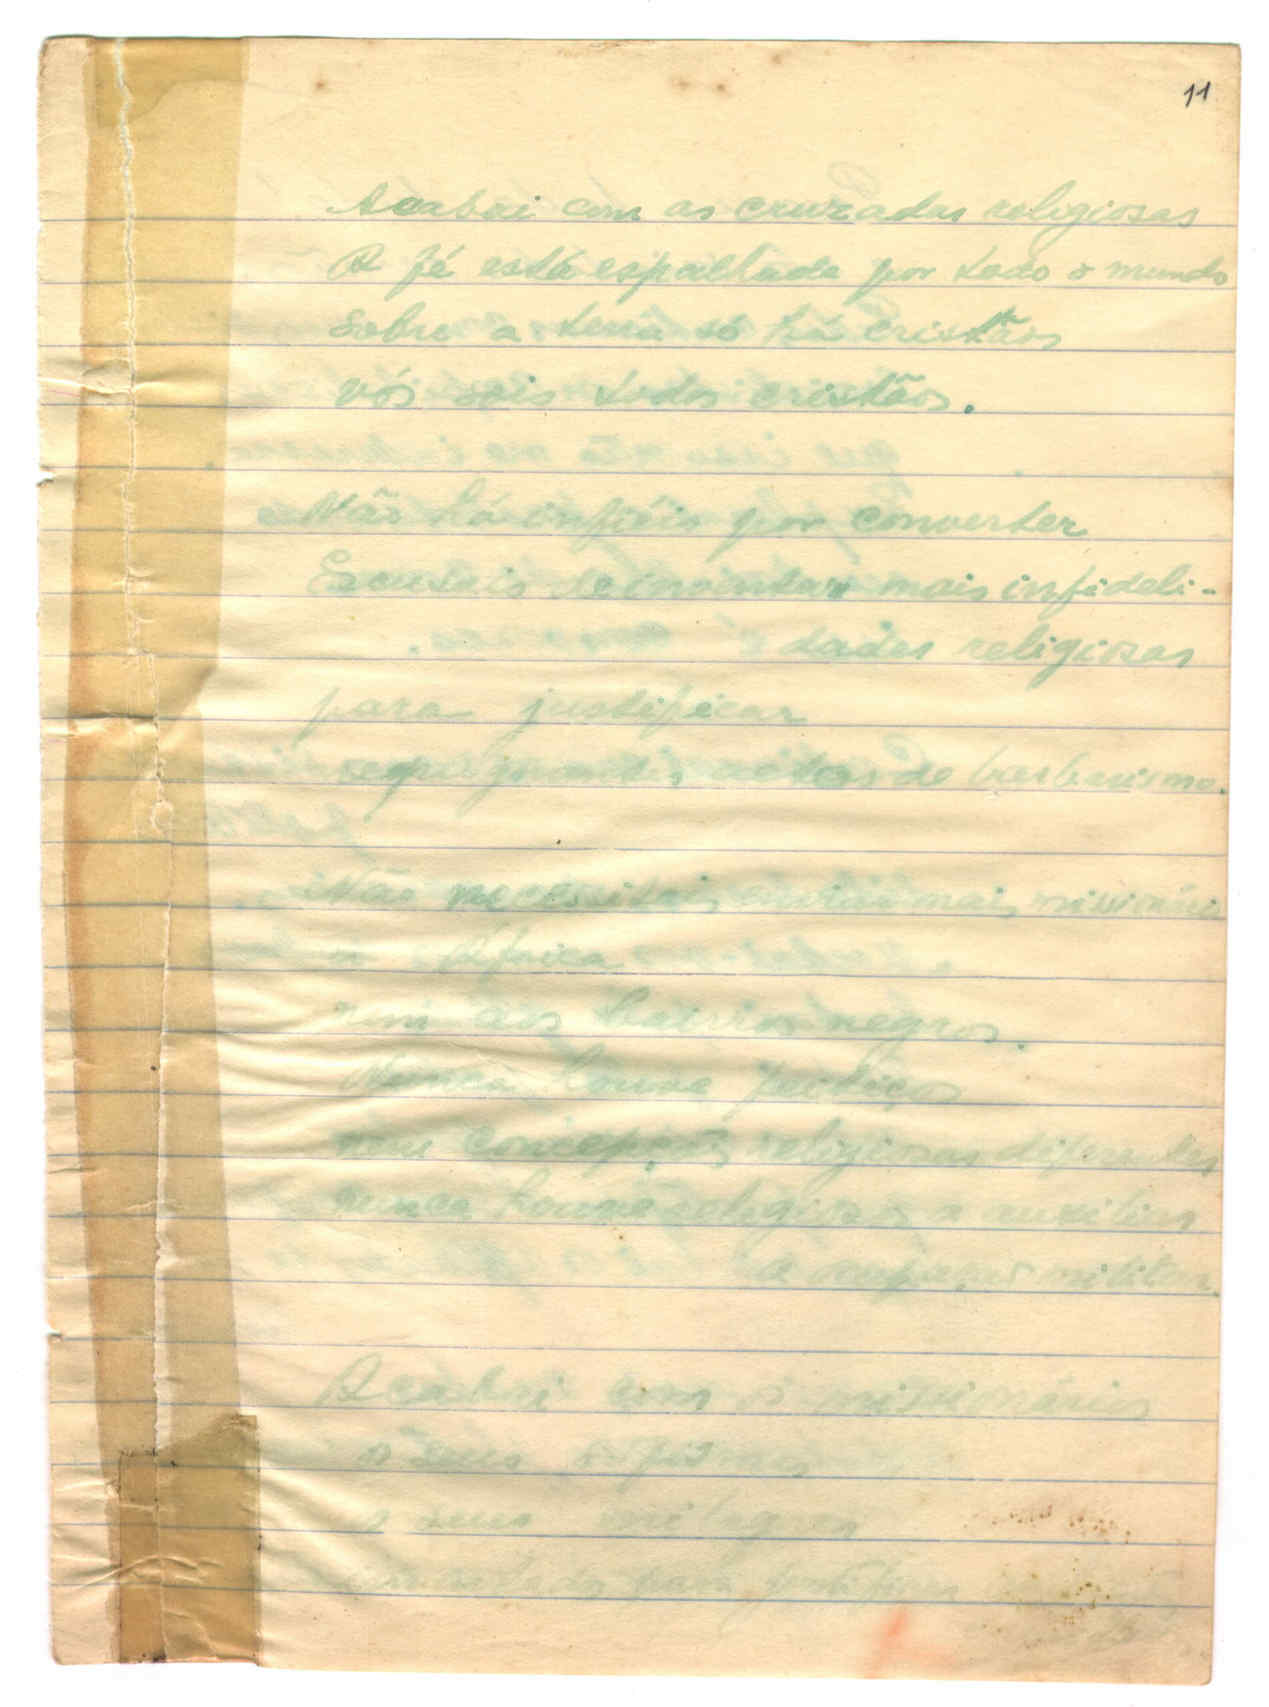 11
Acabai com as cruzadas religiosas
A fé está espalhada por todo o mundo
Sobre a terra só há cristãos
vós sois todos cristãos.
Não há infiéis por converter
Escusais de inventar mais infideli-
dades religiosas
para justificar
repugnantes actos de barbarismo.
Não necessitais enviar mais missionários
a África
nem aos bairros negros.
Nunca houve feitiços
nem concepções religiosas diferentes
nunca houve religiosos a auxiliar
a ocupação militar.
Acabai com os missionários
e seus
e seus milagres
inventados para justificar